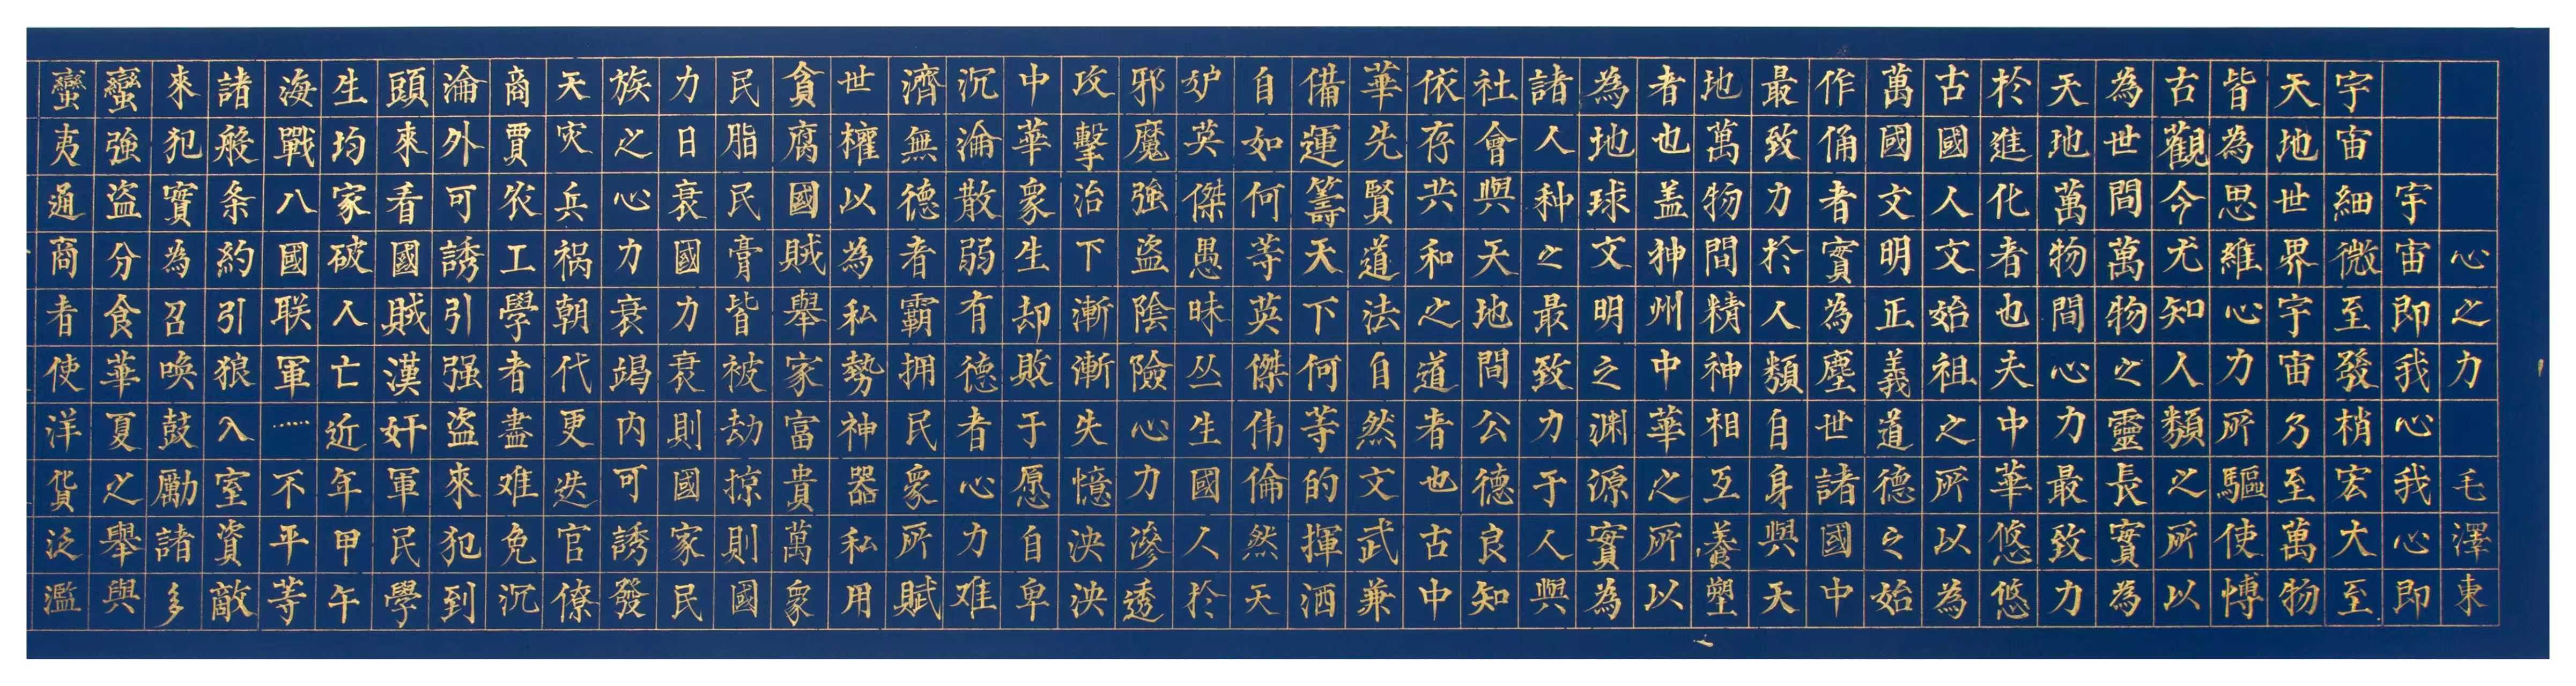 心之力 毛澤東
宇宙即我心我心即
宇宙細微至發梢宏大至
天地世界宇宙乃至萬物
皆為思維心力所驅使愽
古觀今尤知人類之所以
為世間萬物之靈長實為
天地萬物間心力最致力
於進化者也夫中華悠悠
古國人文始祖之所以為
萬國文明正義道德之始
作俑者實為塵世諸國中
最致力於人類自身與天
地萬物間精神相互養塑
者也盖神州中華之所以
為地球文明之渊源實為
諸人种之最致力于人與
社會與天地間公德良知
依存共和之道者也古中
華先賢道法自然文武兼
備運籌天下何等的揮洒
自如何等英傑伟倫然天
妒英傑愚昧丛生國人於
邪魔強盜陰險心力滲透
攻擊治下漸漸失憶泱泱
中華衆生却敗于愿自卑
沉淪散弱有德者心力难
濟無德者霸拥民衆所賦
世權以為私勢神器私用
貪腐國賊舉家富貴萬衆
民脂民膏皆被劫掠則國
力日衰國力衰則國家民
族之心力衰竭内可誘發
天灾兵祸朝代更迭官僚
商賈农工學者盡难免沉
淪外可誘引强盜來犯到
頭來看國賊漢奸軍民學
生均家破人亡近年甲午
海戰八國联軍……不平等
諸般条約引狼入室資敵
來犯實為召唤鼓勵諸多
蠻強盜分食華夏之舉與
蠻夷通商者使洋貨泛濫